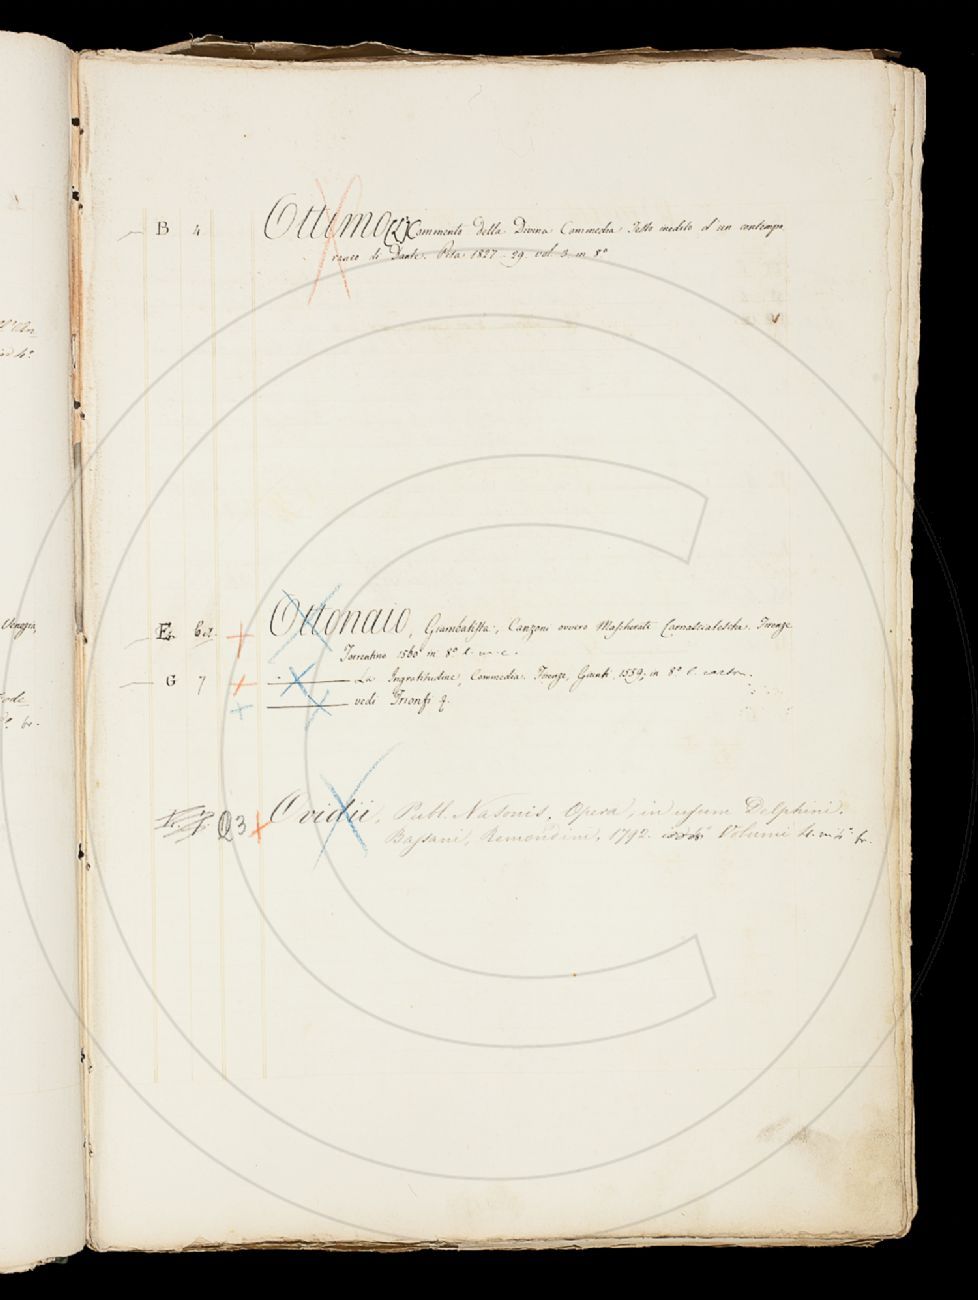 B 4 Ottimo (L') Commento della Divina Commedia Testo inedito d'un contempo
raneo di Dante. Pisa 1827-29. vol. 3. in 8°
Venezia,
E. 6 Ottonaio, Giambatista, Canzoni ovvero Mascherate Carnascialesche. Firenze
Torrentino 1560 in 8° l. m. c.
G 7 La Ingratitudine, Commedia. Firenze, Giunti, 1559, in 8° l. carton.
vedi Trionfi &.
Q 3 Ovidii, Publ. Nasonis, Opera, in usum Delphini.
Bassani, Remondini, 1792. Volumi 4. in 4° br.